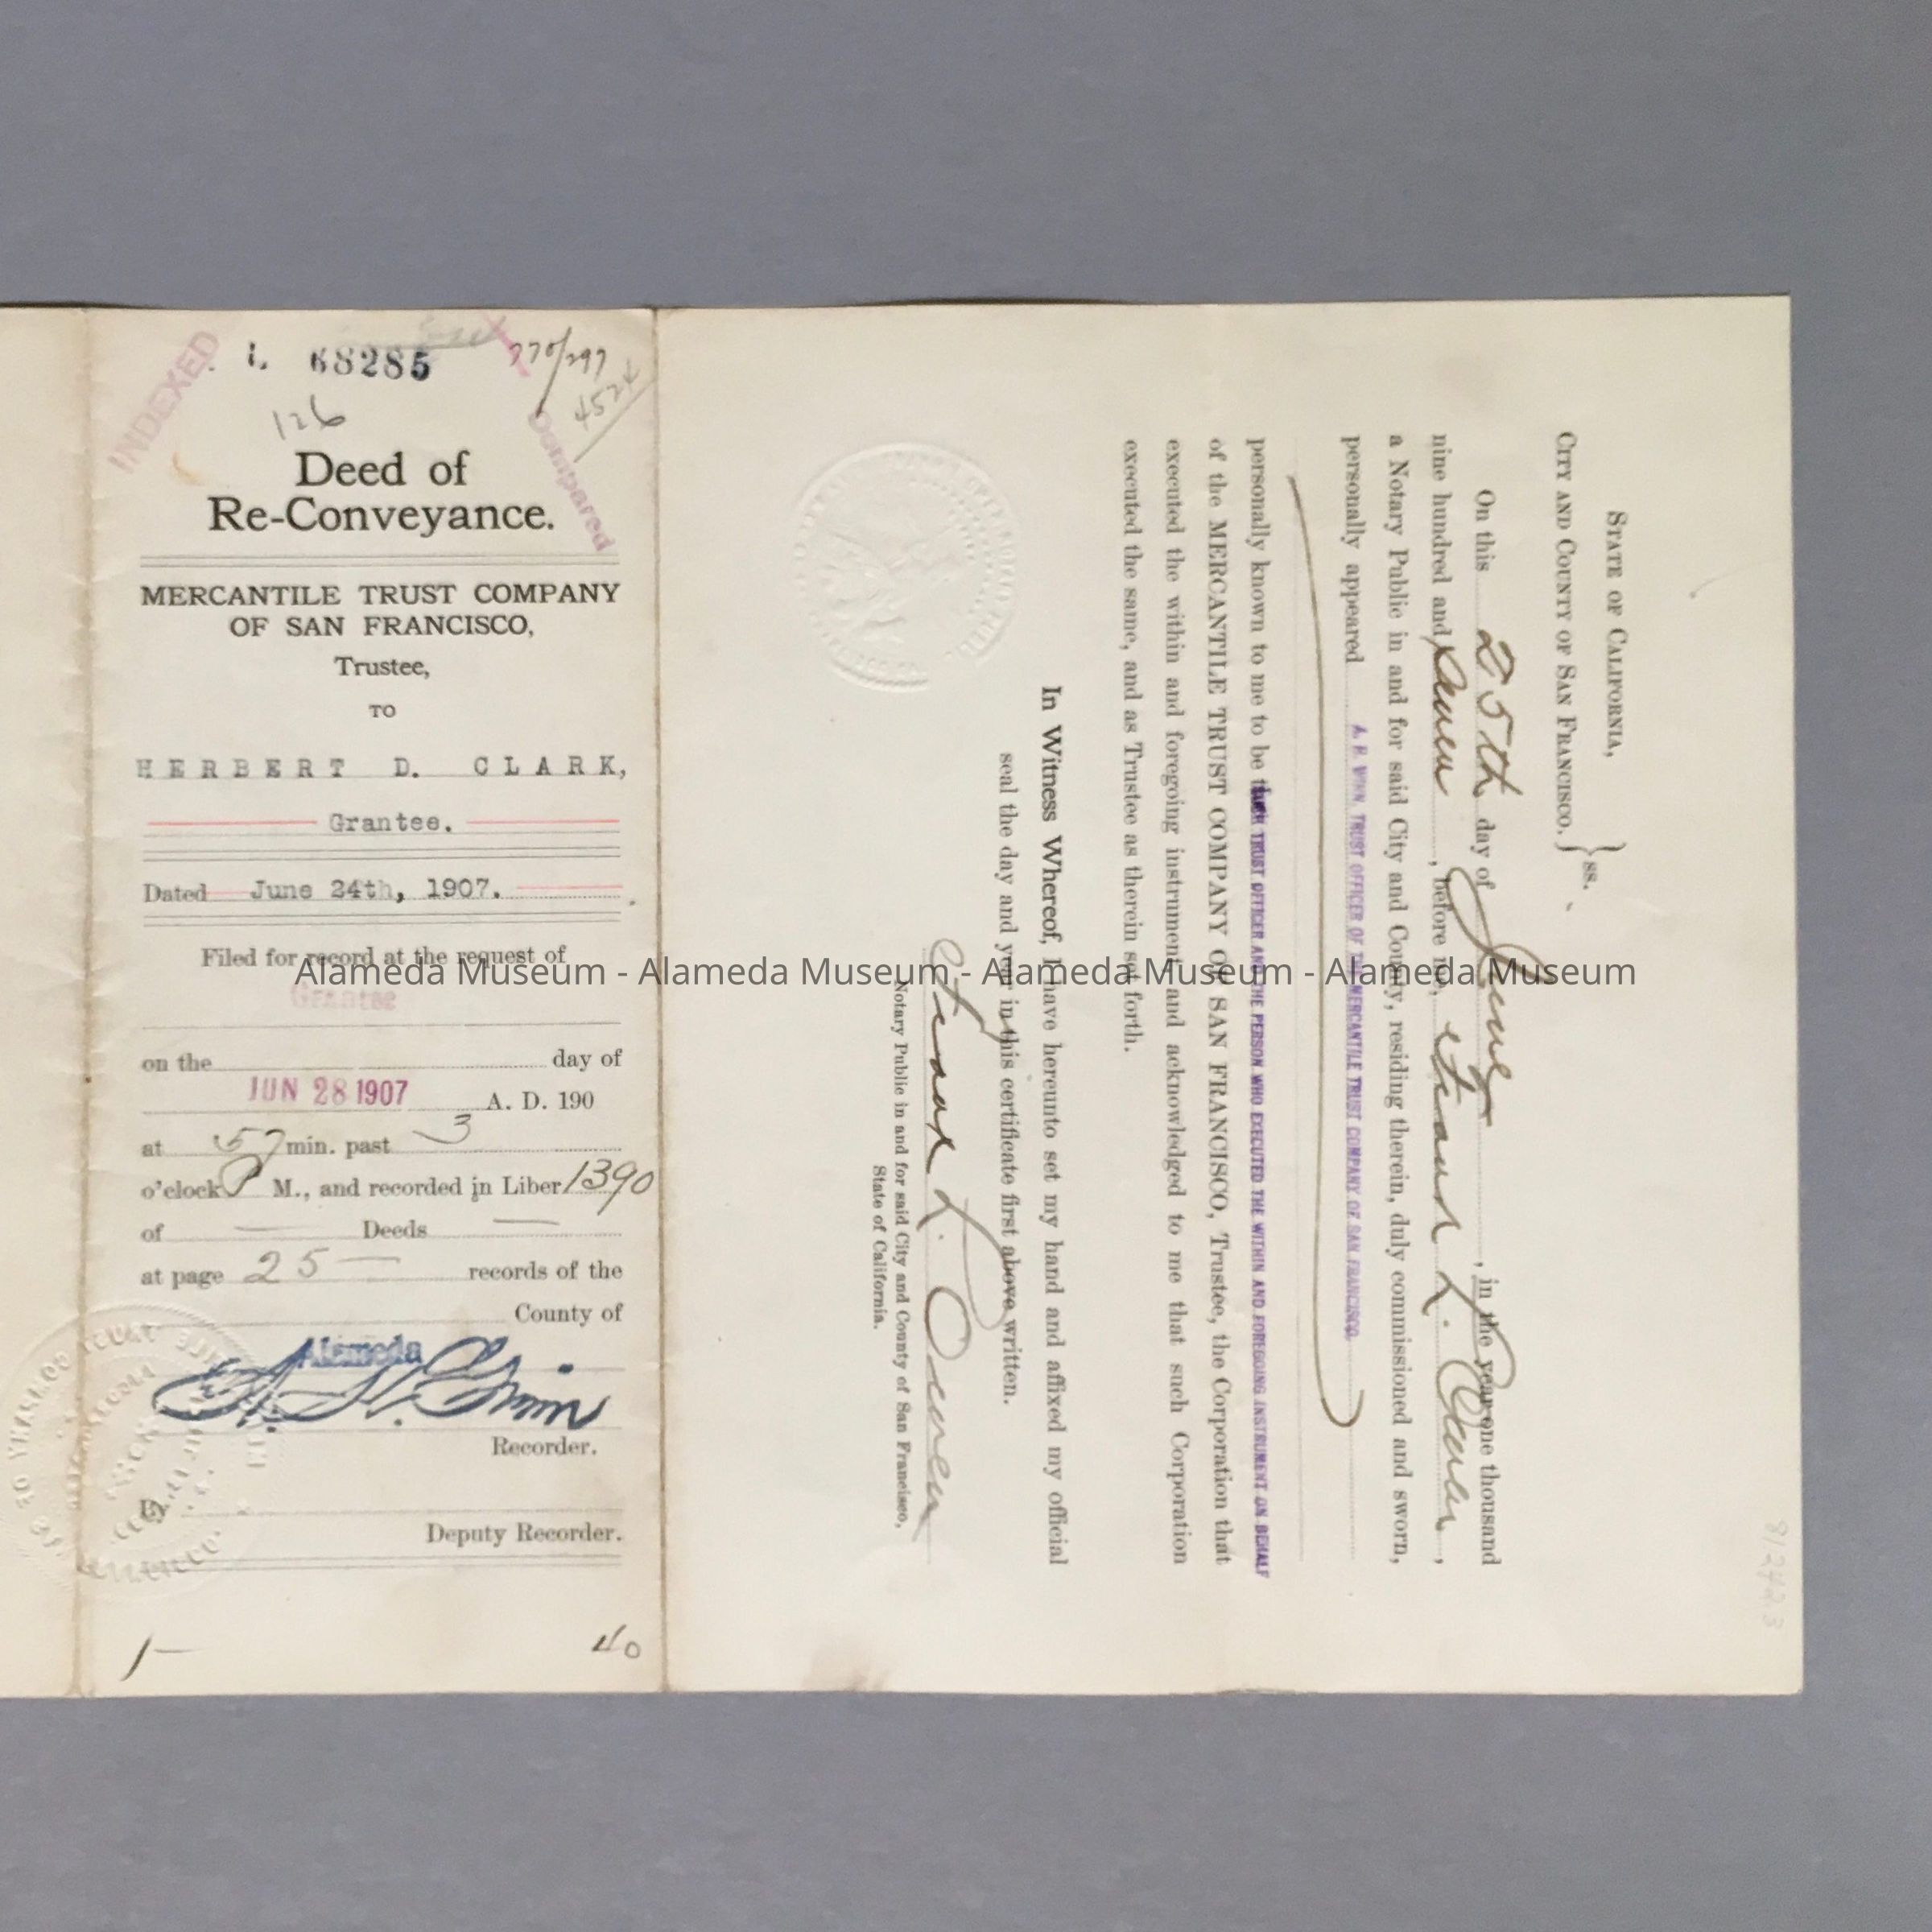 INDEXED
68285
770/297
4524
126
Compared
Deed of
Re-Conveyance.
MERCANTILE TRUST COMPANY
OF SAN FRANCISCO,
Trustee,
TO
HERBERT D. CLARK,
Grantee.
Dated June 24th, 1907.
Filed for record at the request of
Grantee
on the day of
JUN 28 1907 A. D. 190
at 57 min. past 3
o'clock P M., and recorded in Liber 1390
of — Deeds —
at page 25 — records of the
County of
Alameda
Recorder.
By
Deputy Recorder.
1—
40
STATE OF CALIFORNIA,
CITY AND COUNTY OF SAN FRANCISCO. } ss.
On this 25th day of June, in the year one thousand
nine hundred and seven, before me, Frank L. Owen,
a Notary Public in and for said City and County, residing therein, duly commissioned and sworn,
personally appeared TRUST OFFICER OF THE MERCANTILE TRUST COMPANY OF SAN FRANCISCO,
personally known to me to be TRUST OFFICER AND THE PERSON WHO EXECUTED THE WITHIN AND FOREGOING INSTRUMENT ON BEHALF
of the MERCANTILE TRUST COMPANY OF SAN FRANCISCO, Trustee, the Corporation that
executed the within and foregoing instrument, and acknowledged to me that such Corporation
executed the same, and as Trustee as therein set forth.
In Witness Whereof, I have hereunto set my hand and affixed my official
seal the day and year in this certificate first above written.
Frank L. Owen
Notary Public in and for said City and County of San Francisco,
State of California.
Alameda Museum - Alameda Museum - Alameda Museum - Alameda Museum